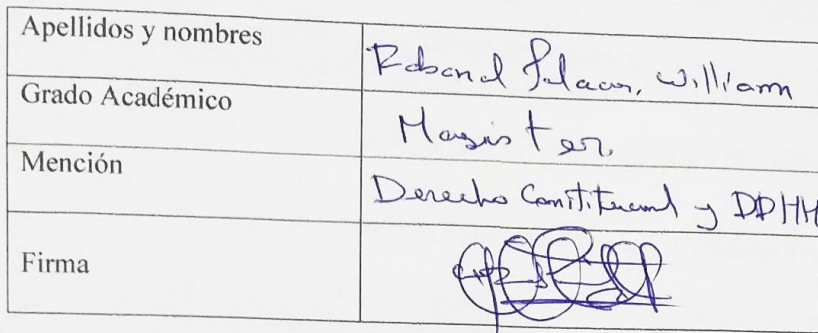 Apellidos y nombres
Rabanal Palacios, William
Grado Académico
Magister.
Mención
Derecho Constitucional y DDHH
Firma